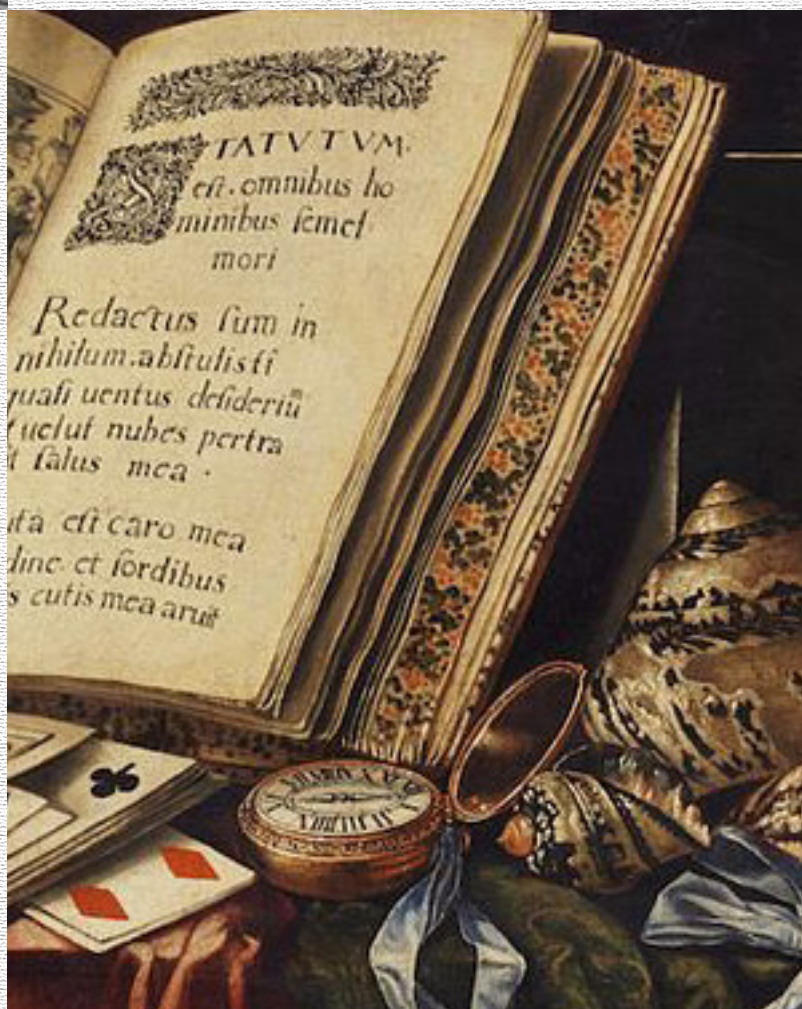 STATVTVM.
est. omnibus ho
minibus semel
mori
Redactus sum in
nihilum. abstulisti
quasi uentus desideriū
uelut nubes pertra
salus mea .
est caro mea
et sordibus
cutis mea aruit